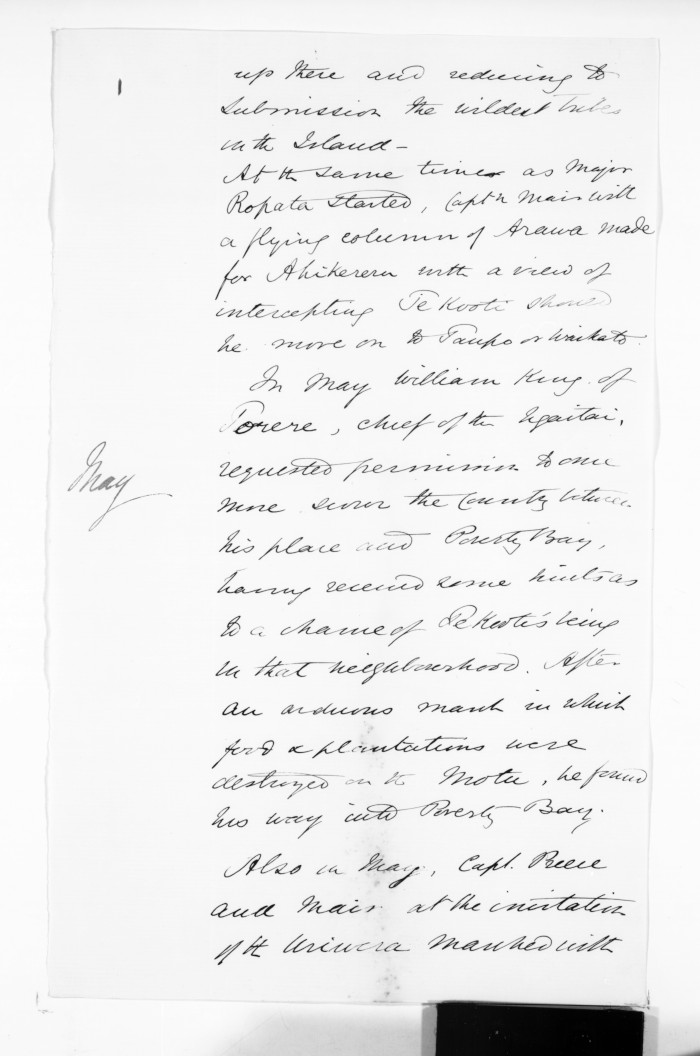 up there and reducing to
submission the wildest tribes
in the Island -
At the same time as Major
Ropata started, Captn Mair with
a flying column of Arawa made
for Ahikereru with a view of
intercepting Te Kooti should
he move on to Taupo or Waikato.
In May William King of
Torere, chief of the Ngaitai,
requested permission to once
May
more scour the country between
his place and Poverty Bay,
having received some hints as
to a chance of Te Kooti's being
in that neighbourhood. After
an arduous march in which
food & plantations were
destroyed on the Motu, he found
his way into Poverty Bay.
Also in May, Capt. Preece
and Mair at the invitation
of the Uriwera marched with